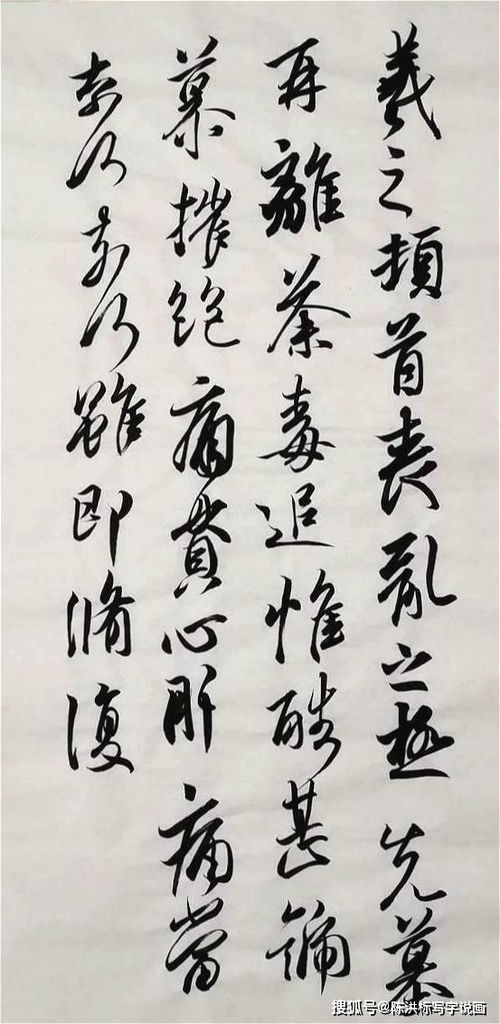 羲之頓首喪亂之極先墓
再離荼毒追惟酷甚號
慕摧絕痛貫心肝痛當
奈何奈何雖即脩復
搜狐号@陈洪标写字说画